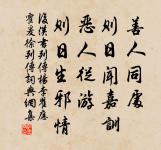 善人同處
則日聞嘉訓
惡人從游
則日生邪情
後漢書列傳楊李翟應
霍爰徐列傳詞典網集